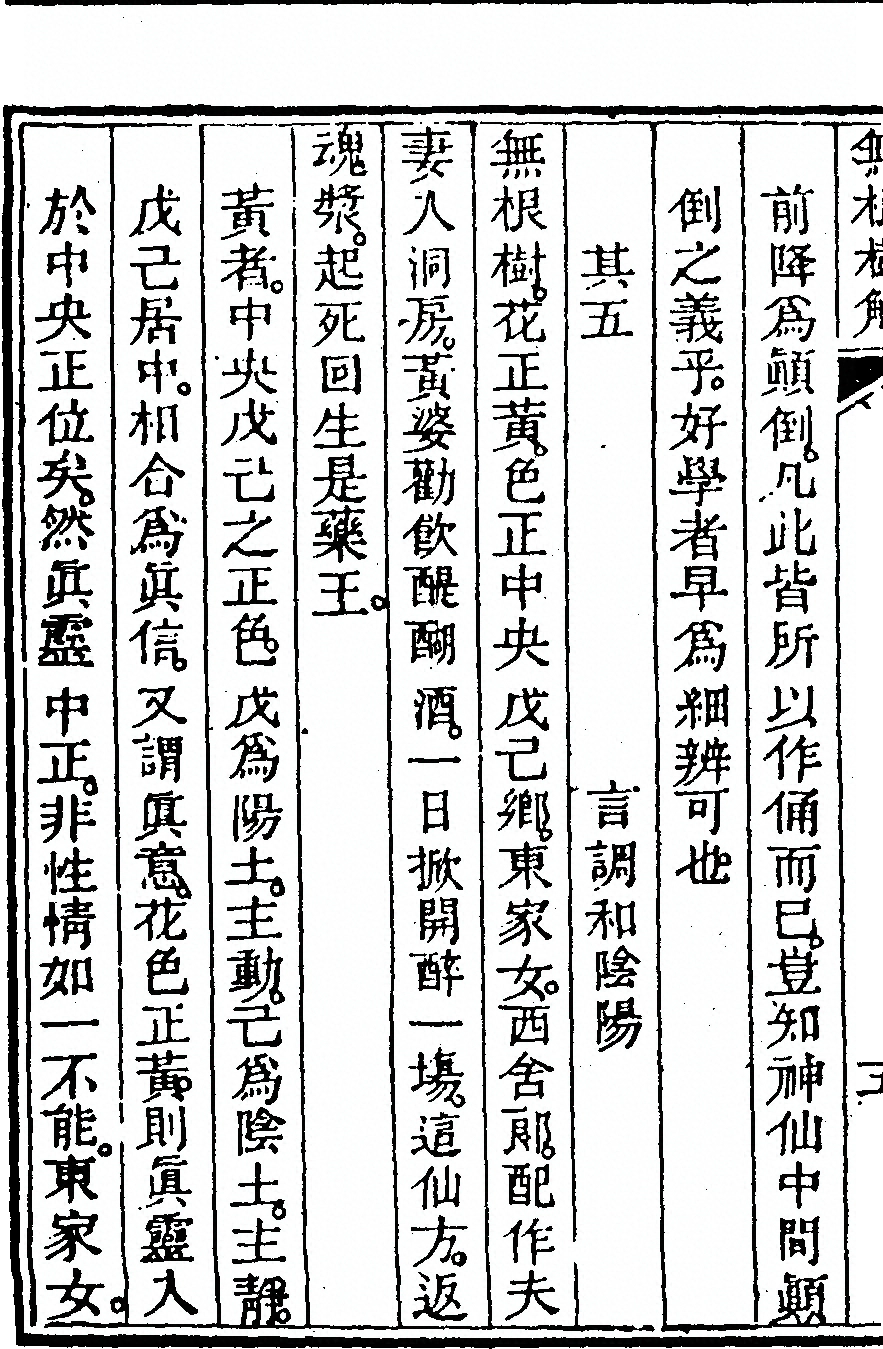 無根樹解
五
前降爲顛倒。凡此皆所以作俑而已。豈知神仙中間顛
倒之義乎。好學者早爲細辨可也
其五　言調和陰陽
無根樹。花正黃。色正中央戊己鄉。東家女。西舍郎。配作夫
妻入洞房。黃婆勸飲醍醐酒。一日掀開醉一塲。這仙方。返
魂漿。起死回生是藥王。
黃者。中央戊己之正色。戊爲陽土。主動。己爲陰土。主靜。
戊己居中。相合爲眞信。又謂眞意。花色正黃。則眞靈入
於中央正位矣。然眞靈中正。非性情如一不能。東家女。